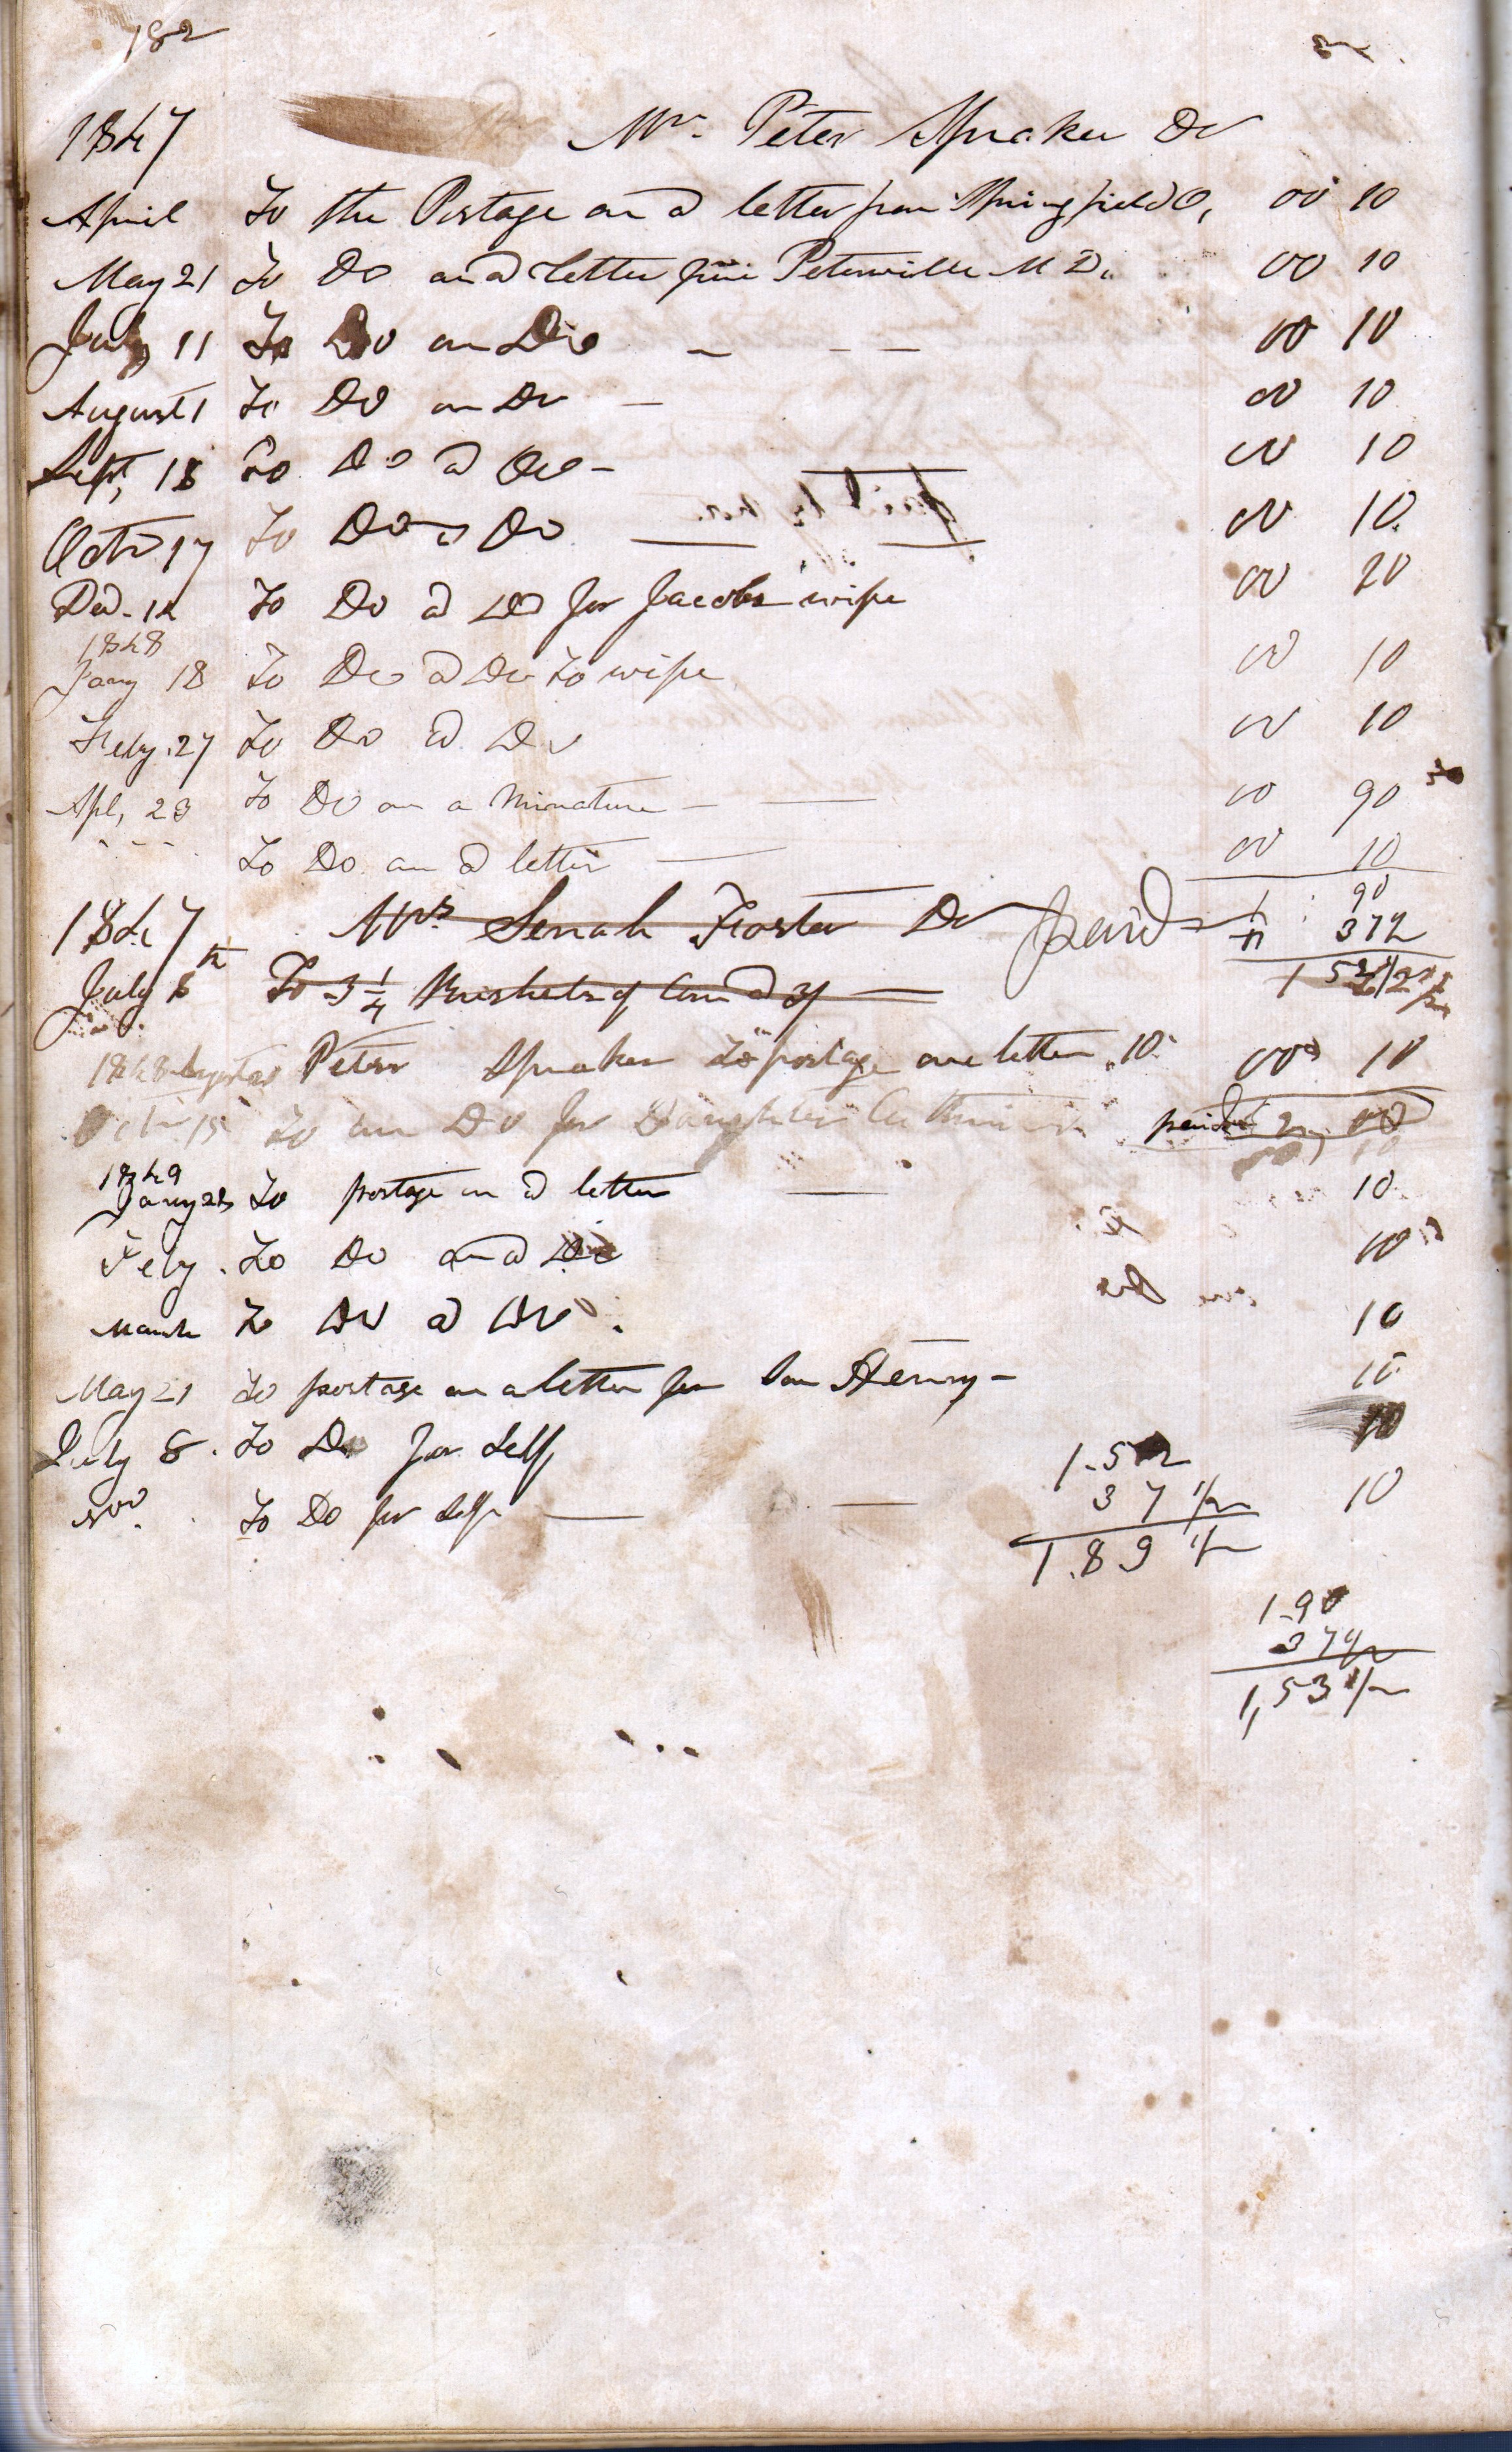 182
1847 Mr. Peter Spraker Dr
April To the Postage on a letter from Springfield O, 00 10
May 21 To Do on a Letter from Petersville M D. 00 10
July 11 To Do on Do 00 10
August 1 To Do on Do 00 10
Sept, 18 To Do a Do 00 10
Octr 17 To Do a Do 00 10
Dec. 12 To Do a Do for Jacobs wife 00 20
1848
Jany 18 To Do a Do to wife 00 10
Feby. 27 To Do a Do 00 10
Apl, 23 To Do on a Minature 00 90
To Do on a letter 00 10
1 90
1847 Mrs Senah Froster Dr paid 37 1/2
July 6th To 3 1/4 Bushels of Corn a 3/ 1 52 1/2
1848 Peter Spraker To postage one letter 10 00 10
Octr 15 To one Do for Daughter paid
1849
Jany 23 To postage on a letter 10
Feby. To Do on a Do 10
March To Do a Do. 10
May 21 To postage on a letter for Son Henry 10
July 8. To Do for Self 10
Nov. To Do for Self 10
1.52
37 1/2
1.89 1/2
1.90
37 1/2
1,53 1/2